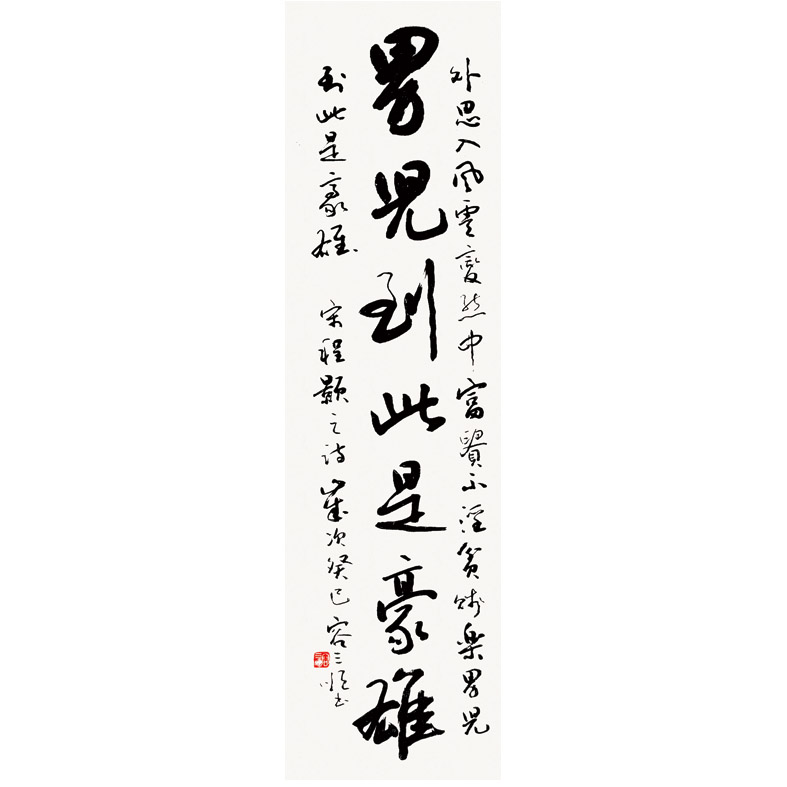 外思入風雲變態中富貴不淫貧賤樂男兒
男兒到此是豪雄
到此是豪雄 宋程顥之詩 歲次癸巳 容三